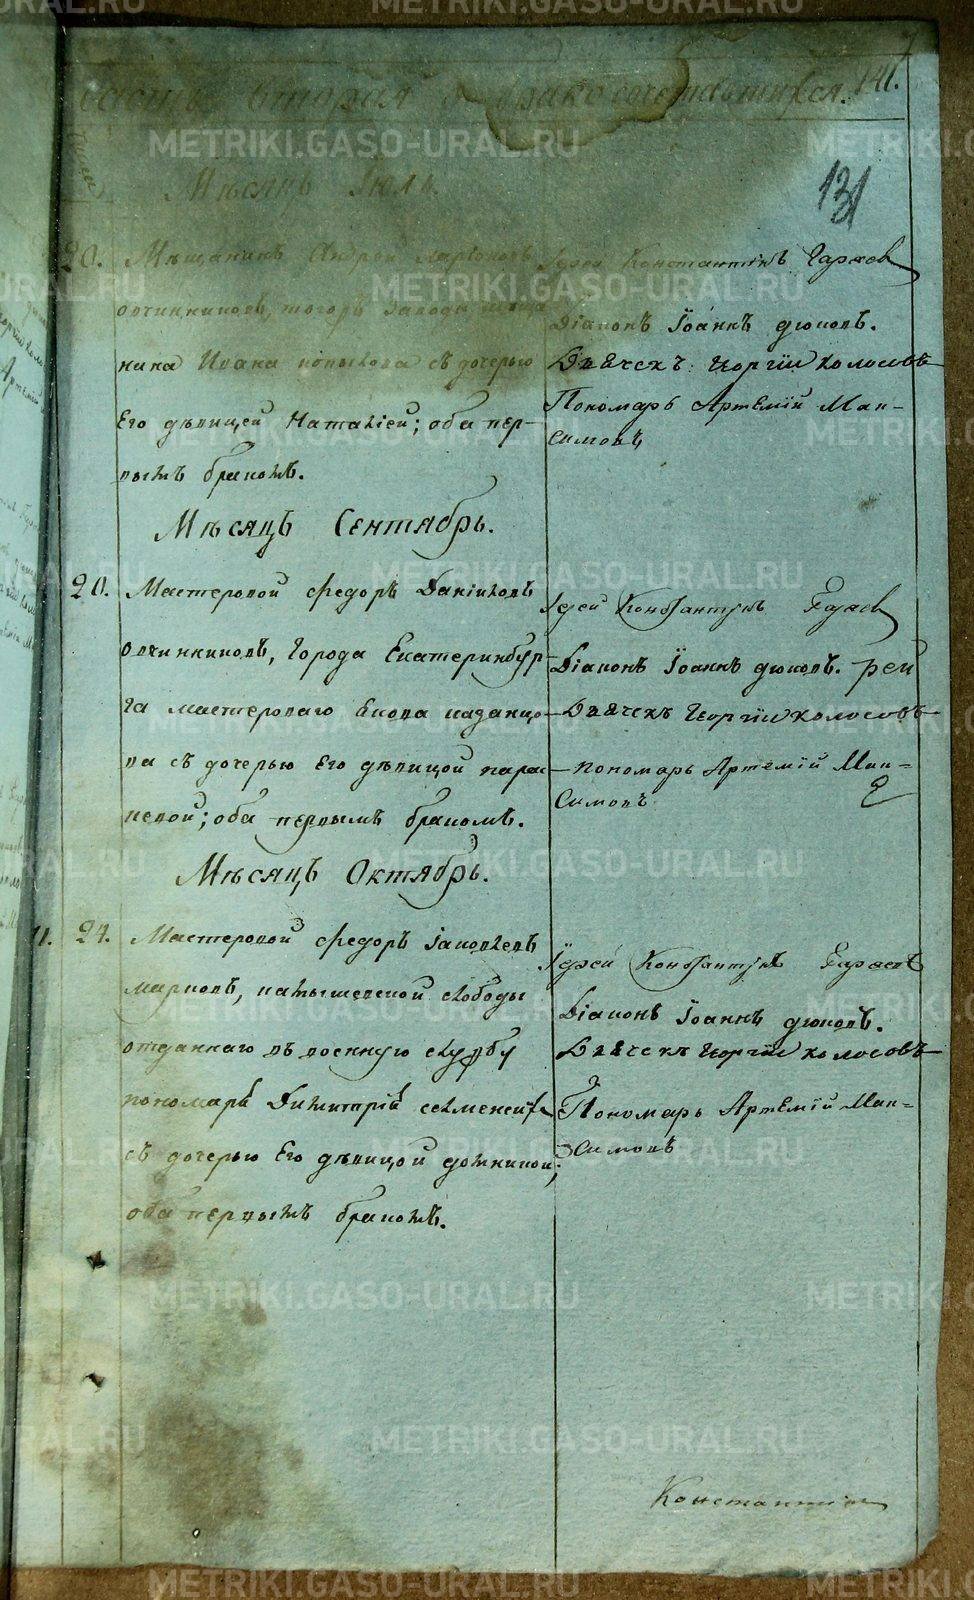 Часть вторая о бракосочетавшихся. 141.
131
Мѣсяцъ Iюль.
20. Мѣщанинъ Андрей Ларiоновъ
овчинниковъ, тогожъ завода мѣща
нина Ивана копылова съ дочерью
Его дѣвицей Наталiей; оба пер-
вымъ бракомъ.
Iерей Константинъ
Дiаконъ Iоаннъ дюковъ.
Дьячекъ Георгiй колосовъ
Пономарь Артемiй Мак-
симовъ
Мѣсяцъ Сентябрь.
20. Мастеровой федоръ Данiиловъ
овчинниковъ, Города Екатеринбур-
га мастероваго
ва съ дочерью Его дѣвицой парас
кевой; оба первымъ бракомъ.
Iерей Константинъ
Дiаконъ Iоаннъ дюковъ.
Дьячекъ Георгiй колосовъ
пономарь Артемiй Мак-
симовъ
Мѣсяцъ Октябрь.
11. 24. Мастеровой федоръ Iаковлевъ
марковъ, камышевской слободы
отданнаго въ военную службу
пономаря Димитрiя
съ дочерью Его дѣвицой домникой;
оба первымъ бракомъ.
Iерей Константинъ
Дiаконъ Iоаннъ дюковъ.
Дьячекъ Георгiй колосовъ
Пономарь Артемiй Мак-
симовъ
Константин
METRIKI.GASO-URAL.RU